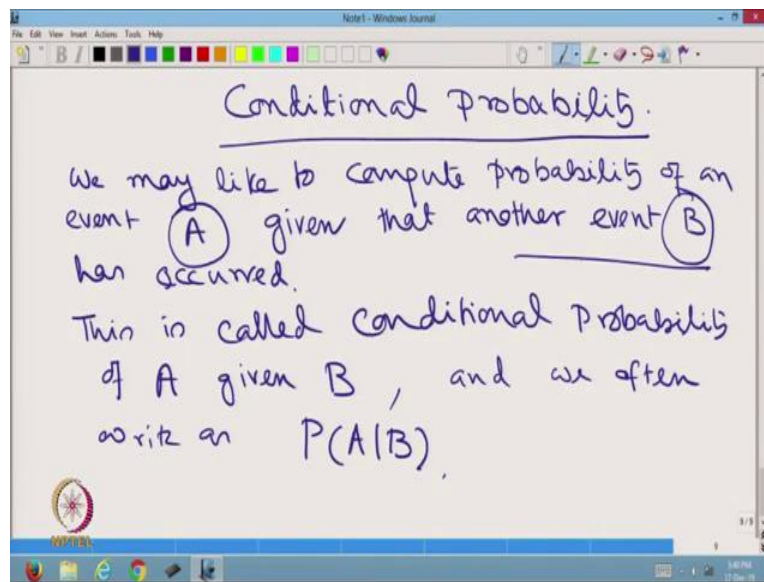 Note1 - Windows Journal
File Edit View Insert Actions Tools Help
Conditional Probability.
We may like to compute probability of an
event A given that another event B
has occurred.
This is called Conditional Probability
of A given B , and we often
write as P(A|B).
NPTEL
9/9
9
5:40 PM